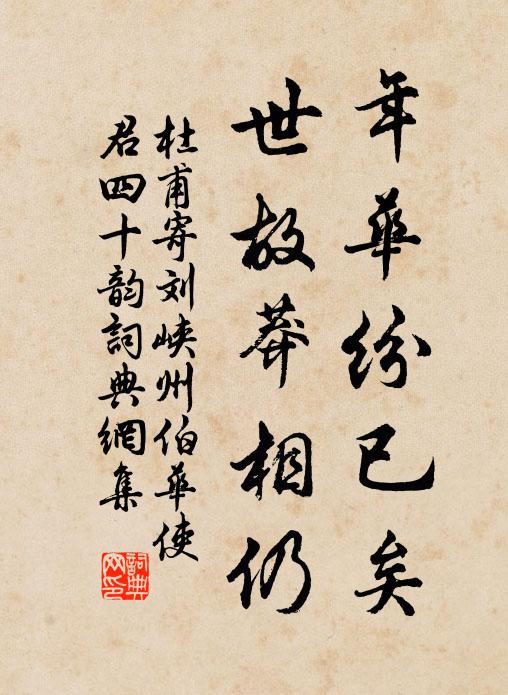 年華紛已矣
世故莽相仍
杜甫寄刘峡州伯華使
君四十韵詞典網集
詞典網印